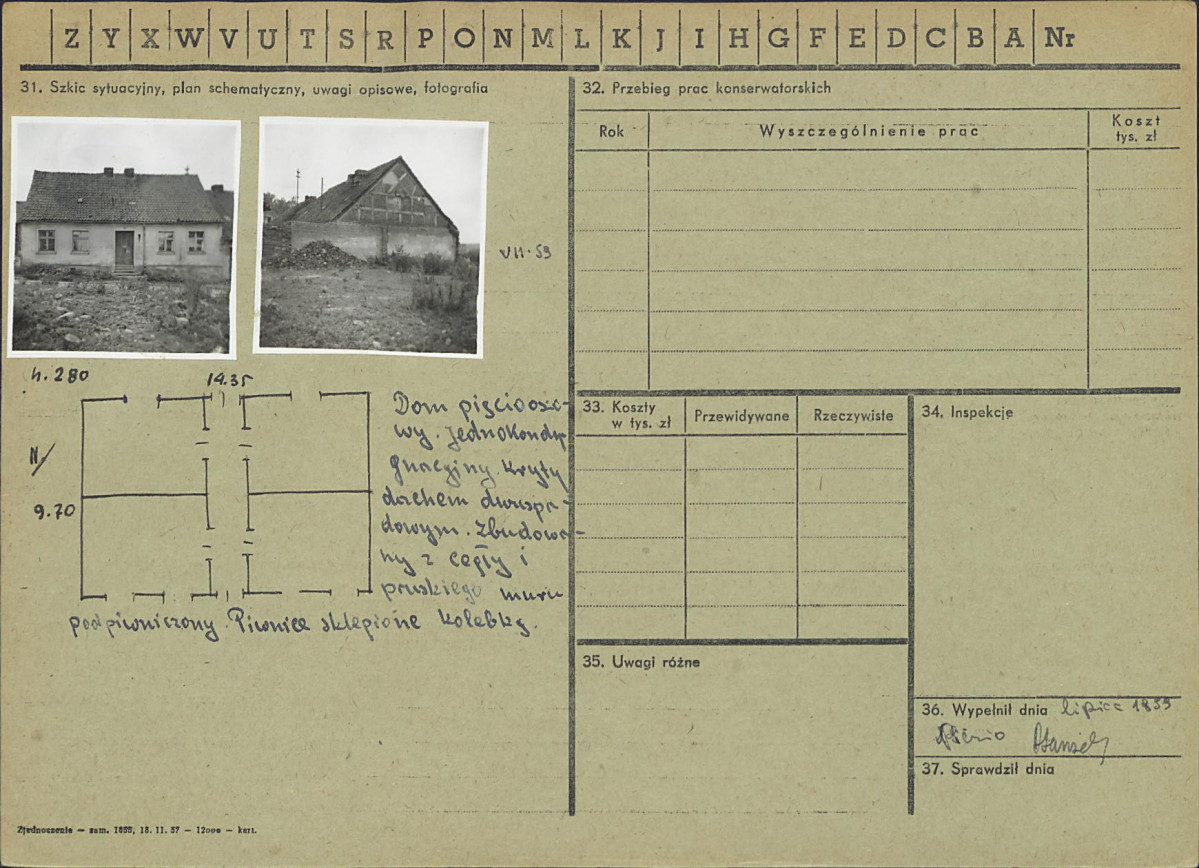 Z Y X W V U T S R P O N M L K J I H G F E D C B A Nr
31. Szkic sytuacyjny, plan schematyczny, uwagi opisowe, fotografia
VII·59
h. 280
14.35
N/
9.70
Dom pięcioosio-
wy. Jednokondy-
gnacyjny. Kryty
dachem dwuspa-
dowym. Zbudowa-
ny z cegły i
pruskiego muru
podpiwniczony. Piwnice sklepione kolebką.
32. Przebieg prac konserwatorskich
Rok
Wyszczególnienie prac
Koszt
tys. zł
33. Koszty
w tys. zł
Przewidywane
Rzeczywiste
34. Inspekcje
35. Uwagi różne
36. Wypełnił dnia lipiec 1959
37. Sprawdził dnia
Zjednoczenie — zam. 1858, 18. 11. 57 — 12000 — kart.